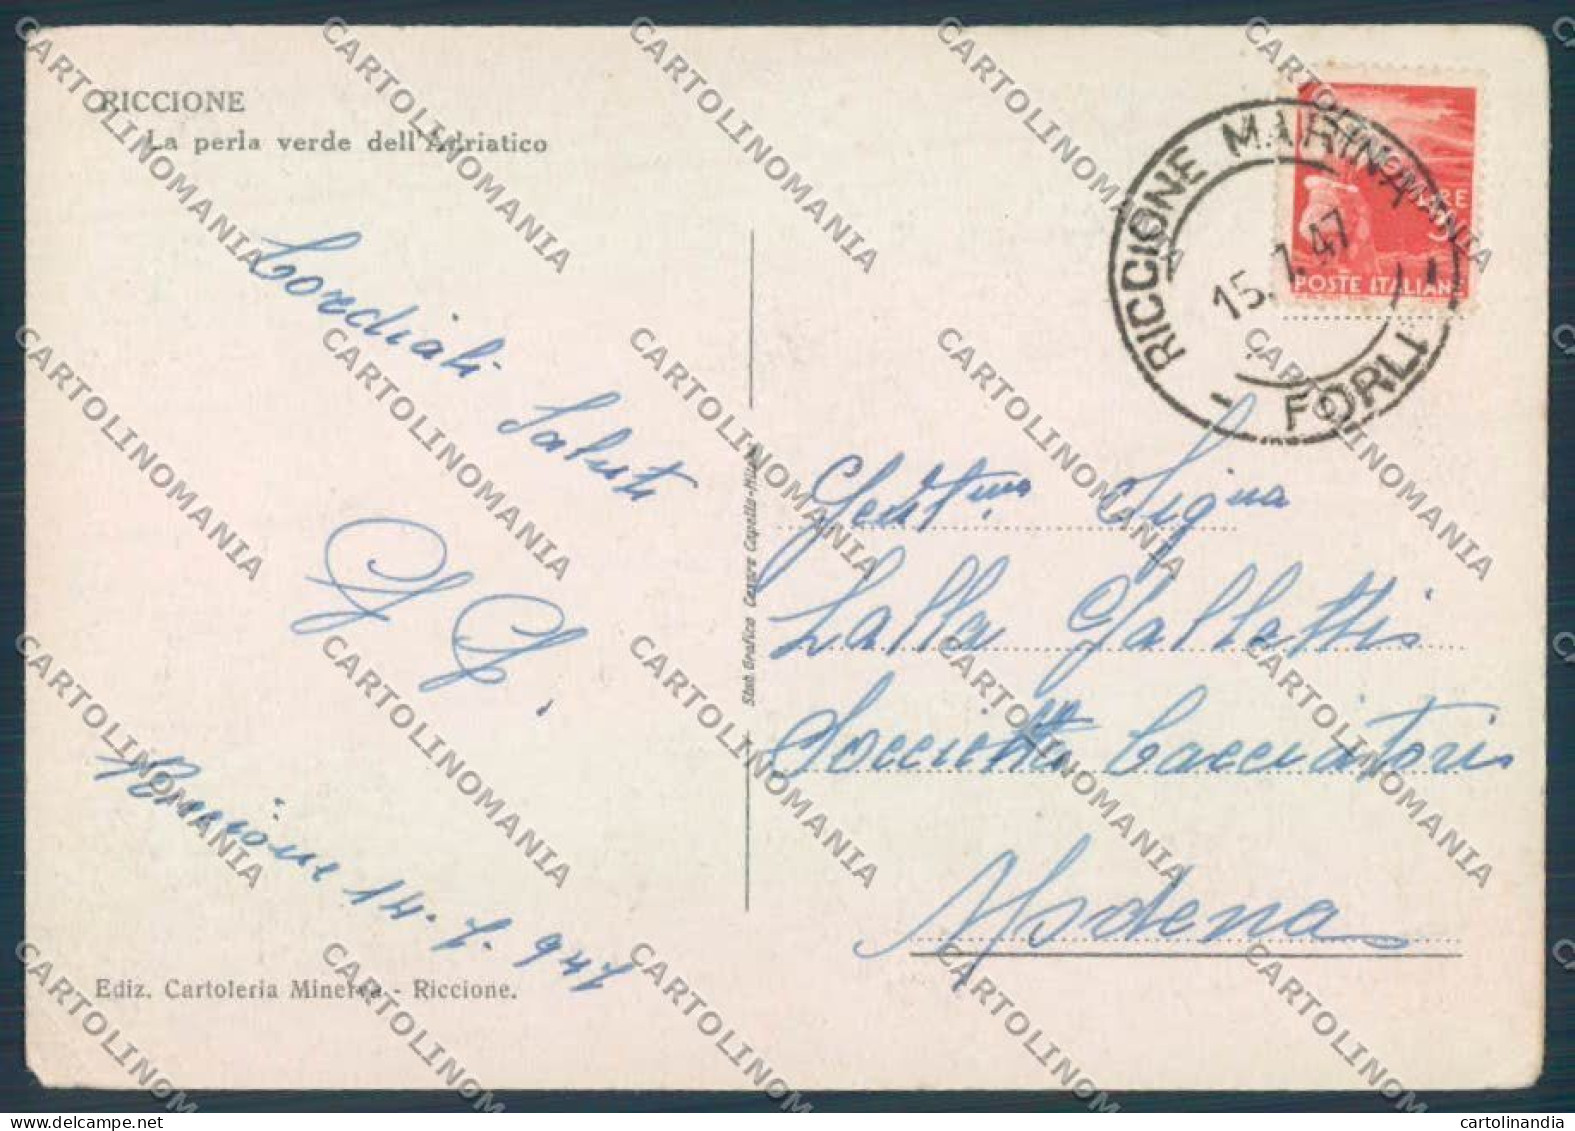 RICCIONE
La perla verde dell'Adriatico
Cordiali Saluti
G G.
Riccione 14.7.947
Ediz. Cartoleria Minerva - Riccione.
Stab. Grafico Cesare Capello - Milano
RICCIONE MARINA
15.7.47
- FORLI
LIRE 3
POSTE ITALIANE
Gent.ma Sig.na
Lalla Galletti
Cacciatori
Modena
CARTOLINOMANIA
cartolinandia